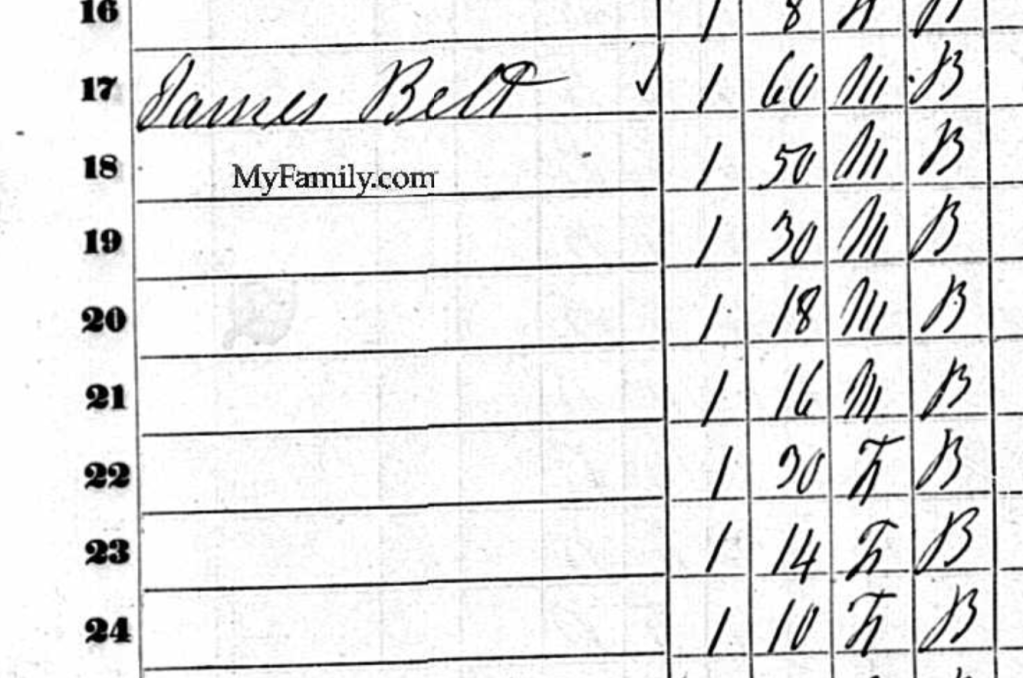 16 1 8 F B
17 James Belt ✓ 1 60 M B
18 1 50 M B
MyFamily.com
19 1 30 M B
20 1 18 M B
21 1 16 M B
22 1 30 F B
23 1 14 F B
24 1 10 F B